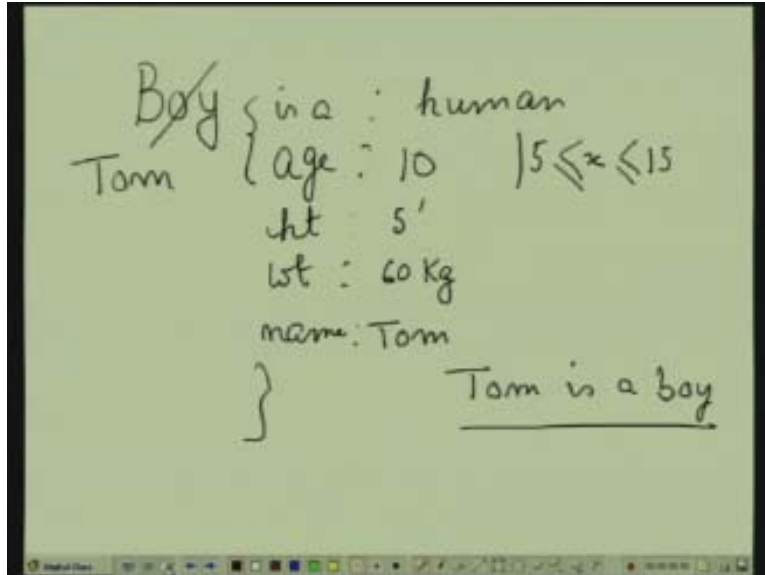 Boy { is a : human
Tom { age : 10 | 5 ≤ x ≤ 15
ht : 5'
wt : 60 Kg
name: Tom
}
Tom is a boy